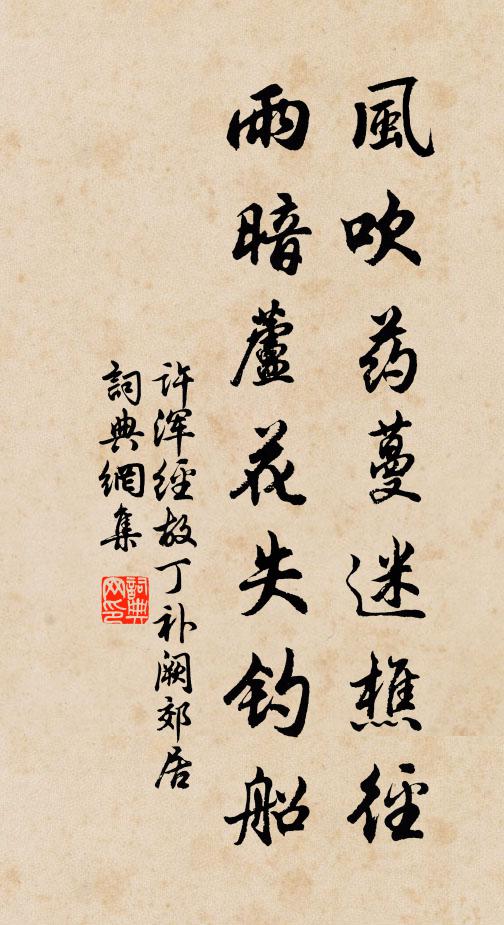 風吹药蔓迷樵徑
雨暗蘆花失钓船
许浑經故丁补阙郊居
詞典網集
詞典网印